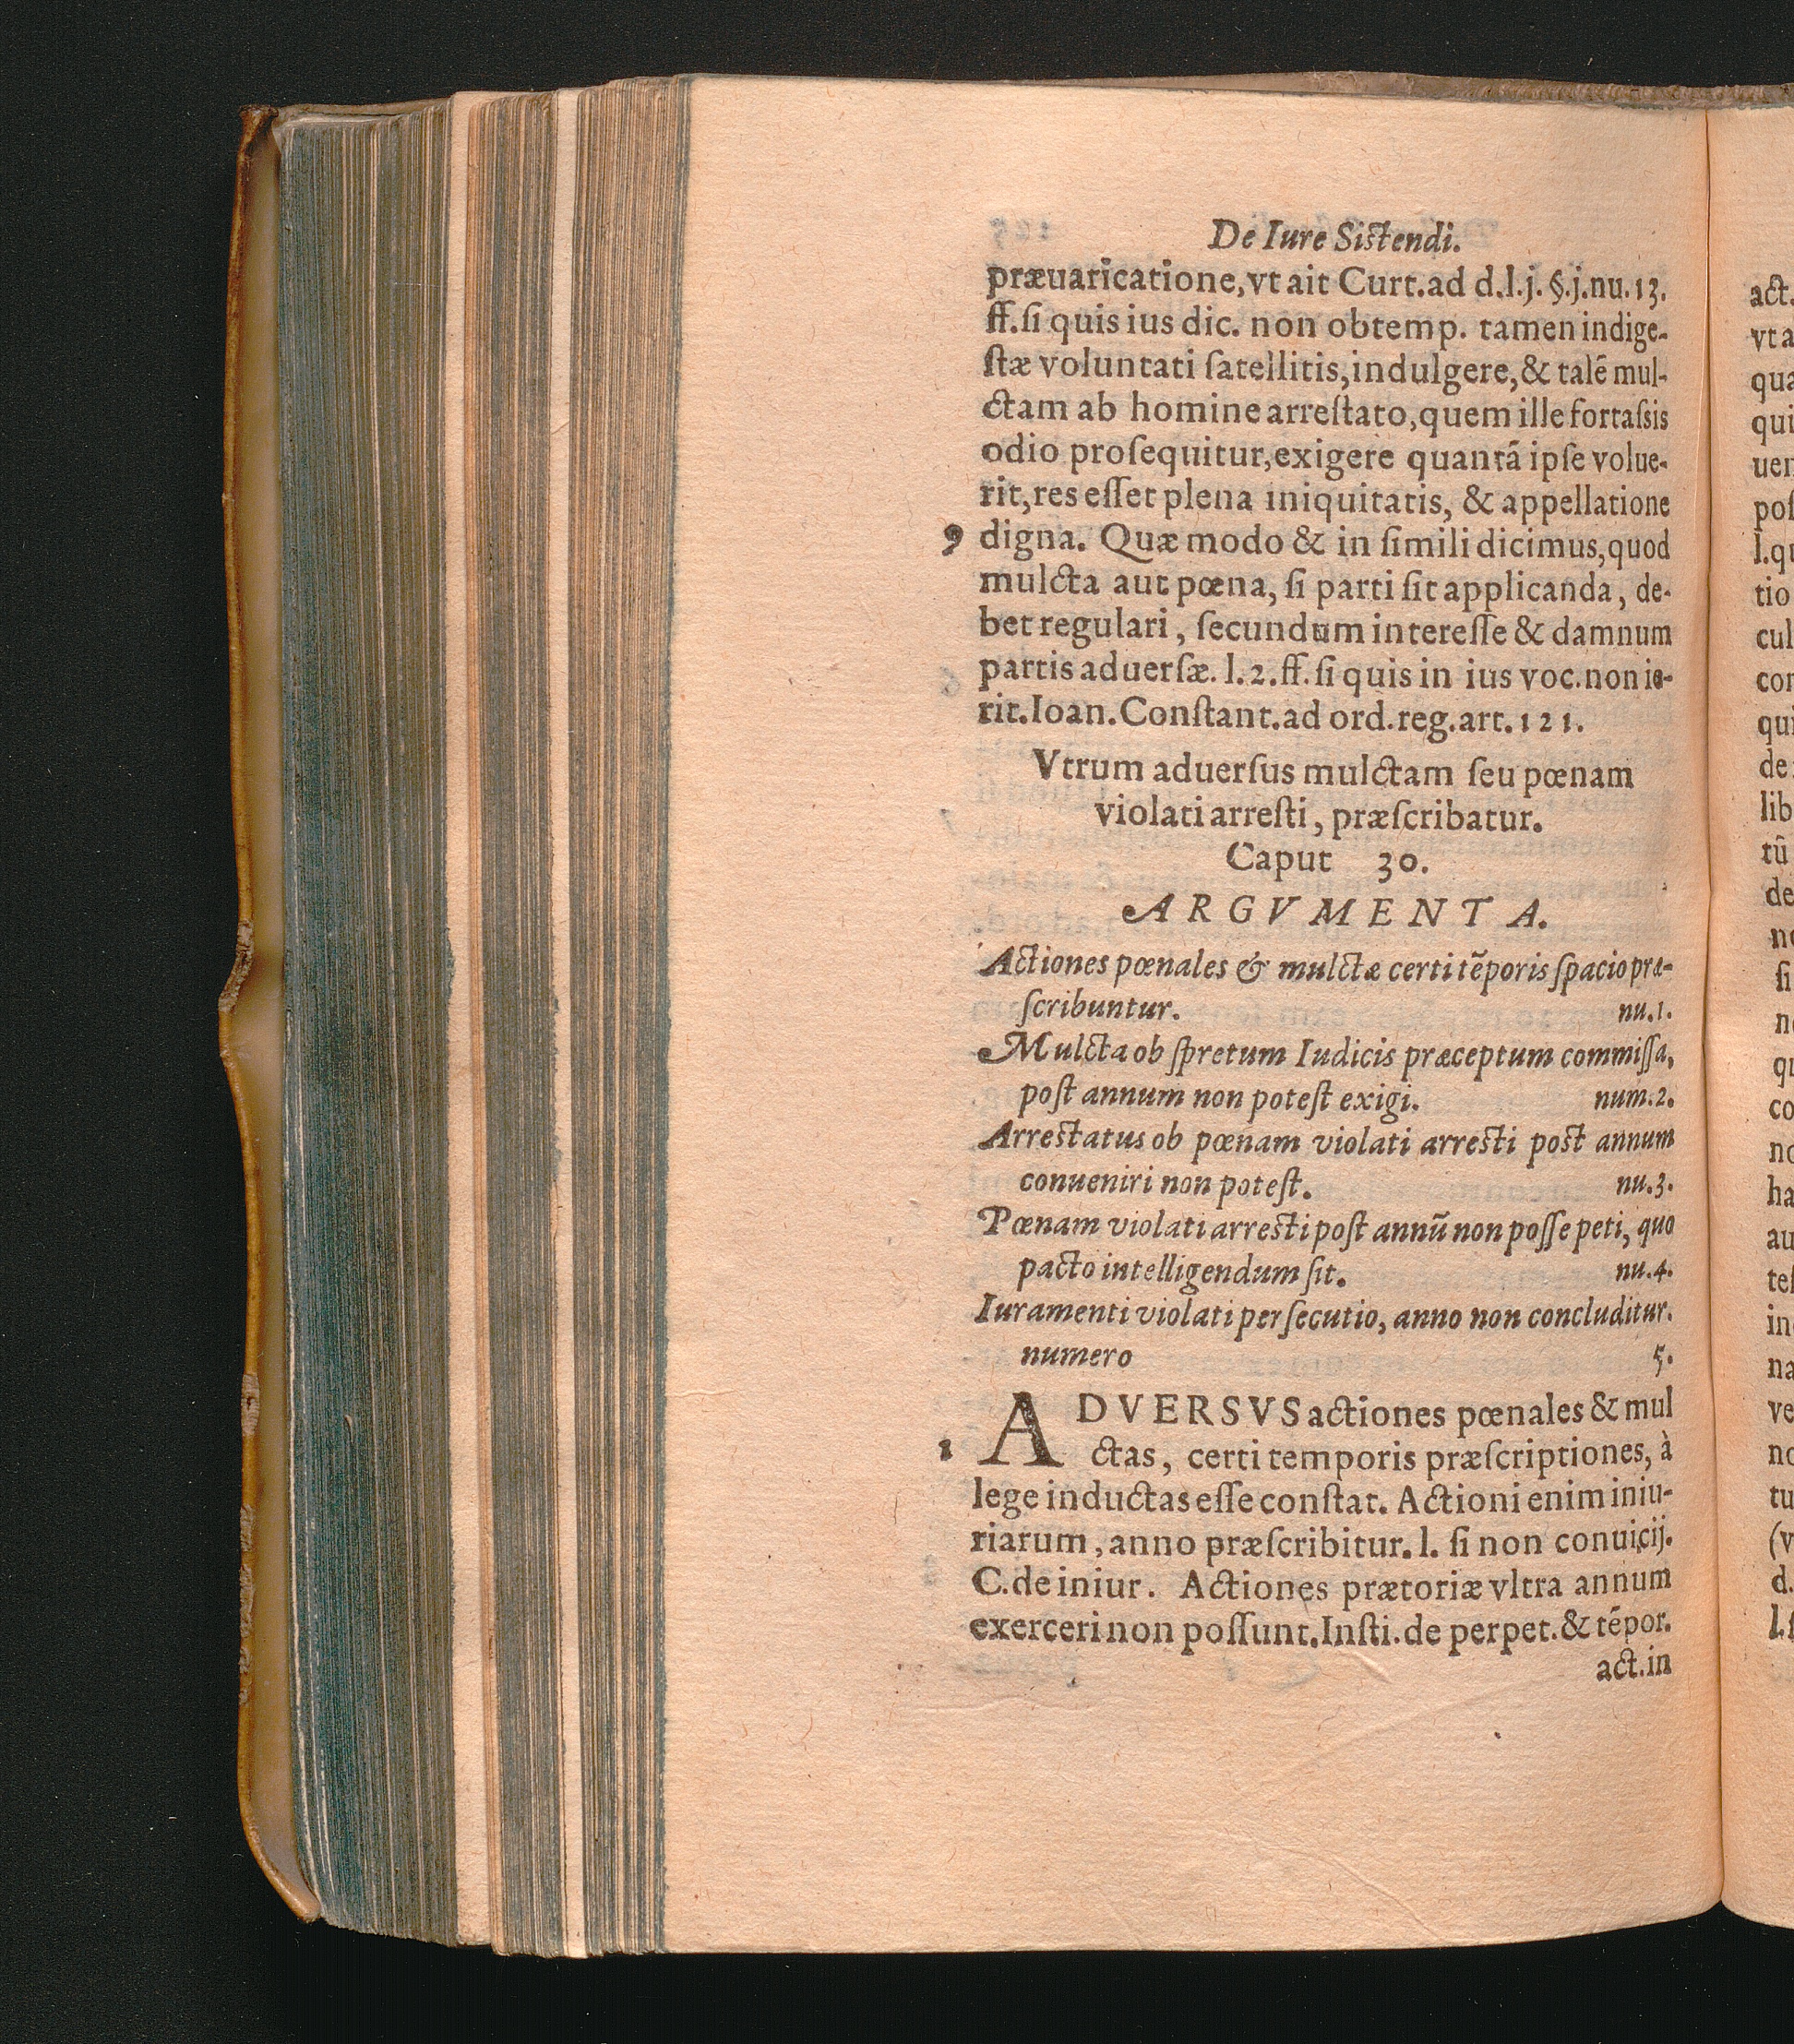 De Iure Sistendi.
præuaricatione, vt ait Curt. ad d.l.j. §.j. nu. 13.
ff. ſi quis ius dic. non obtemp. tamen indige-
ſtæ voluntati ſatellitis, indulgere, & talē mul-
ctam ab homine arreſtato, quem ille fortaſsis
odio proſequitur, exigere quantā ipſe volue-
rit, res eſſet plena iniquitatis, & appellatione
9 digna. Quæ modo & in ſimili dicimus, quod
mulcta aut pœna, ſi parti ſit applicanda, de-
bet regulari, ſecundum intereſſe & damnum
partis aduerſæ. l. 2. ff. ſi quis in ius voc. non ie-
rit. Ioan. Conſtant. ad ord. reg. art. 121.
Vtrum aduerſus mulctam ſeu pœnam
violati arreſti, præſcribatur.
Caput 30.
ARGVMENTA.
Actiones pœnales & mulctæ certi tēporis ſpacio præ-
ſcribuntur. nu. 1.
Mulcta ob ſpretum Iudicis præceptum commiſſa,
poſt annum non poteſt exigi. num. 2.
Arrestatus ob pœnam violati arresti post annum
conueniri non poteſt. nu. 3.
Pœnam violati arresti poſt annū non poſſe peti, quo
pacto intelligendum ſit. nu. 4.
Iuramenti violati perſecutio, anno non concluditur.
numero 5.
ADVERSVS actiones pœnales & mul
1 ctas, certi temporis præſcriptiones, à
lege inductas eſſe conſtat. Actioni enim iniu-
riarum, anno præſcribitur. l. ſi non conuicij.
C. de iniur. Actiones prætoriæ vltra annum
exerceri non poſſunt. Inſti. de perpet. & tēpor.
act. in